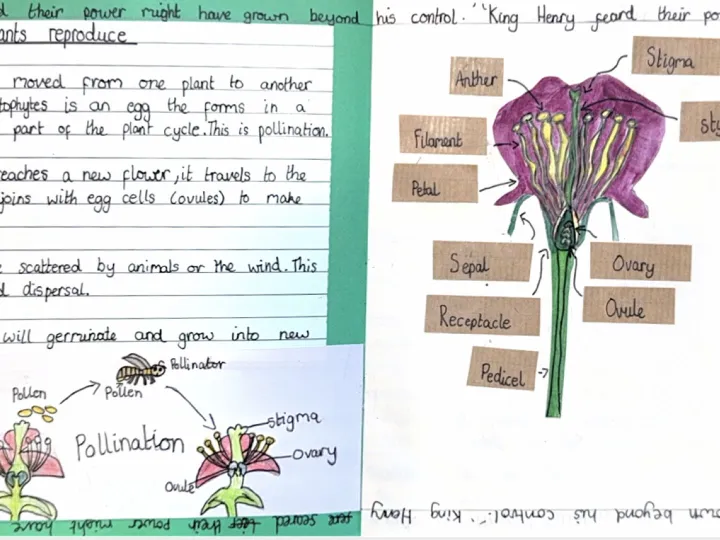 d their power might have grown beyond his control." "King Henry feard their po
ants reproduce
moved from one plant to another
tophytes is an egg the forms in a
part of the plant cycle. This is pollination.
eaches a new flower, it travels to the
joins with egg cells (ovules) to make
e scattered by animals or the wind. This
d dispersal.
will germinate and grow into new
Pollinator
Pollen
Pollen
Pollination
stigma
Ovary
Ovule
Stigma
Anther
sty
Filament
Petal
Sepal
Ovary
Ovule
Receptacle
Pedicel
scared their power might have
wn beyond his control." "King Henry